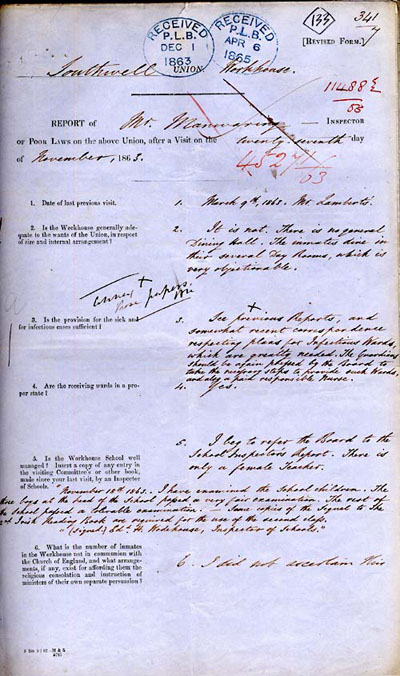 RECEIVED
P.L.B.
DEC 1
1863
RECEIVED
P.L.B.
APR 6
1865
133
341
7
[REVISED FORM.]
Southwell UNION. Workhouse.
11488
63
REPORT of Mr. Manwaring — INSPECTOR
OF POOR LAWS on the above Union, after a Visit on the twenty-seventh day
of November, 1863.
45271
63
1. Date of last previous visit.
1. March 9th, 1863. Mr Lambert's.
2. Is the Workhouse generally ade-
quate to the wants of the Union, in respect
of size and internal arrangement?
2. It is not. There is no general
Dining Hall. The inmates dine in
their several Day Rooms, which is
very objectionable.
+
annex
these papers
3. Is the provision for the sick and
for infectious cases sufficient?
+
3. See previous Reports, and
somewhat recent correspondence
respecting plans for Infectious Wards,
which are greatly needed. The Guardians
should be again pressed by the Board to
take the necessary steps to provide such Wards,
and also a paid responsible Nurse.
4. Are the receiving wards in a pro-
per state?
4. Yes.
5. Is the Workhouse School well
managed? Insert a copy of any entry in
the visiting Committee's or other book,
made since your last visit, by an Inspector
of Schools.
5. I beg to refer the Board to the
School Inspectors Report. There is
only a female Teacher.
"November 18th 1863. I have examined the School children. The
three boys at the head of the School passed a very fair examination. The rest of
the School passed a tolerable examination. — Some copies of the Sequel to the
2nd Irish Reading Book are required for the use of the second class.
"(Signed) Edd. H. Wodehouse, Inspector of Schools."
6. What is the number of inmates
in the Workhouse not in communion with
the Church of England, and what arrange-
ments, if any, exist for affording them the
religious consolation and instruction of
ministers of their own separate persuasion?
6. I did not ascertain this